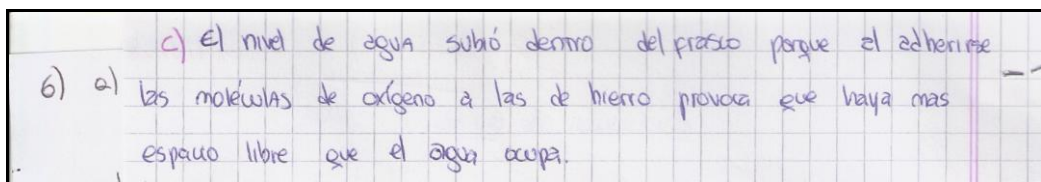 c) El nivel de agua subió dentro del frasco porque al adherirse
6) a) las moléculas de oxígeno a las de hierro provoca que haya mas
espacio libre que el agua ocupa.